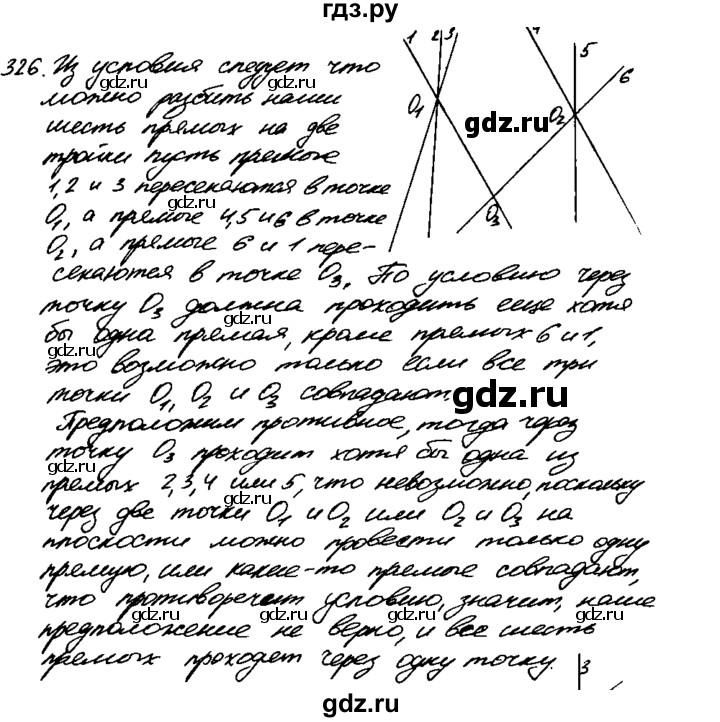 гдз.ру
326. Из условия следует что
можно разбить наши
шесть прямых на две
тройки пусть прямые
1,2 и 3 пересекаются в точке
O1, а прямые 4,5 и 6 в точке
O2, а прямые 6 и 1 пере-
секаются в точке O3. По условию через
точку O3 должна проходить еще хотя
бы одна прямая, кроме прямых 6 и 1,
это возможно только если все три
точки O1, O2 и O3 совпадают.
Предположим противное, тогда через
точку O3 проходит хотя бы одна из
прямых 2,3,4 или 5, что невозможно, поскольку
через две точки O1 и O2 или O2 и O3 на
плоскости можно провести только одну
прямую, или какие-то прямые совпадают,
что противоречит условию, значит, наше
предположение не верно, и все шесть
прямых проходят через одну точку.
1 2 3 5 6
O1 O2 O3
gdz.ru
gdz.ru
gdz.ru
gdz.ru
gdz.ru
gdz.ru
gdz.ru
gdz.ru
gdz.ru
gdz.ru
gdz.ru
gdz.ru
gdz.ru
gdz.ru
3
gdz.ru